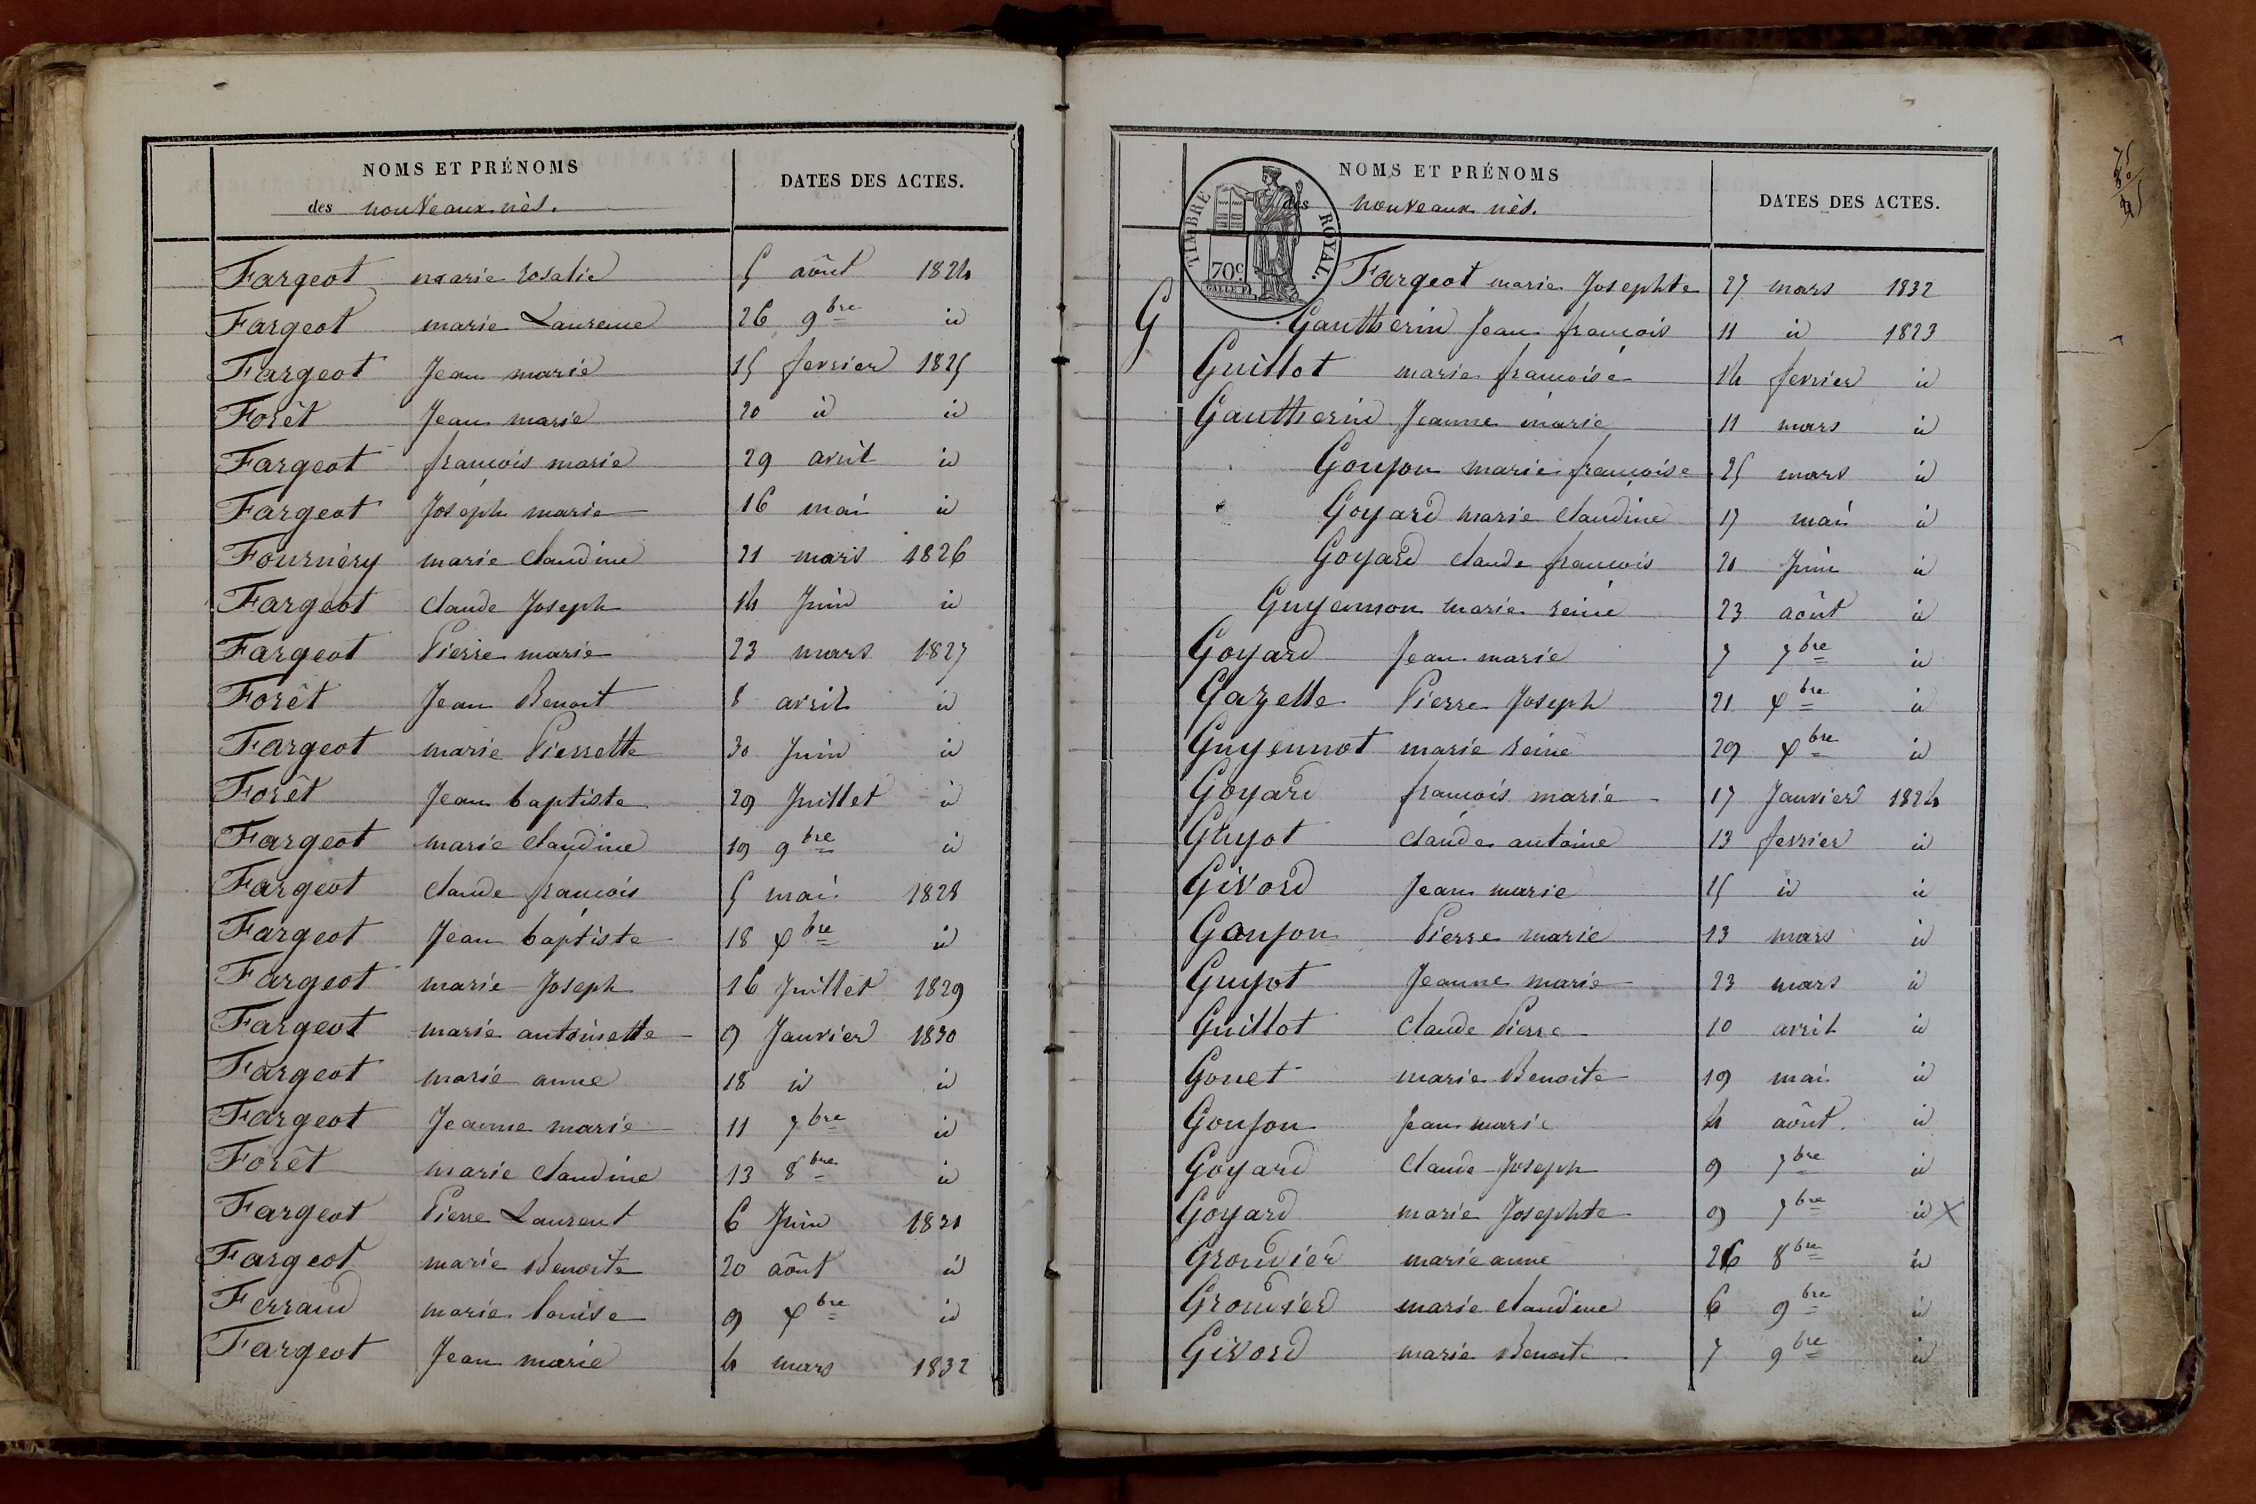 NOMS ET PRÉNOMS
des nouveaux nés.
DATES DES ACTES.
Fargeot marie rosalie 5 aôut 1824
Fargeot marie Laurence 26 9bre id
Fargeot Jean marie 15 fevrier 1825
Forêt Jean marie 20 id id
Fargeot françois marie 29 avril id
Fargeot Joséph marie 16 mai id
Fournéry marie claudine 21 mars 1826
Fargeot claude Joseph 14 Juin id
Fargeot Pierre marie 23 mars 1827
Forêt Jean Benoit 8 avril id
Fargeot marie Pierrette 30 Juin id
Forêt Jean baptiste 29 Juillet id
Fargeot marie claudine 19 9bre id
Fargeot claude françois 5 mai 1828
Fargeot Jean baptiste 18 Xbre id
Fargeot marie Joseph 16 Juillet 1829
Fargeot marie antoinette 9 Janvier 1830
Fargeot marie anne 18 id id
Fargeot Jeanne marie 11 7bre id
Forêt marie claudine 13 8bre id
Fargeot Pierre Laurent 6 Juin 1831
Fargeot marie Benoite 20 aôut id
Ferraud marie louise 9 Xbre id
Fargeot Jean marie 4 mars 1832
NOMS ET PRÉNOMS
des nouveaux nés.
DATES DES ACTES.
TIMBRE ROYAL.
70c.
Fargeot marie Josephte 27 mars 1832
G
Gautherin Jean françois 11 id 1823
Guillot marie françoise 14 fevrier id
Gautherin Jeanne marie 11 mars id
Goujon marie françoise 25 mars id
Goyard marie claudine 17 mai id
Goyard claude françois 21 Juin id
Guyennon marie reine 23 aôut id
Goyard Jean marie 7 7bre id
Gazelle Pierre Joseph 21 Xbre id
Guyennot marie reine 29 Xbre id
Goyard françois marie 17 Janvier 1824
Guyot claude antoine 13 fevrier id
Givord Jean marie 15 id id
Goujon Pierre marie 13 mars id
Guyot Jeanne marie 23 mars id
Guillot claude Pierre 10 avril id
Gonet marie Benoite 19 mai id
Goujon Jean marie 4 aôut id
Goyard claude Joseph 9 7bre id
Goyard marie Josephte 9 7bre id X
Grondier marie anne 26 8bre id
Grondier marie claudine 6 9bre id
Givord marie Benoite 7 9bre id